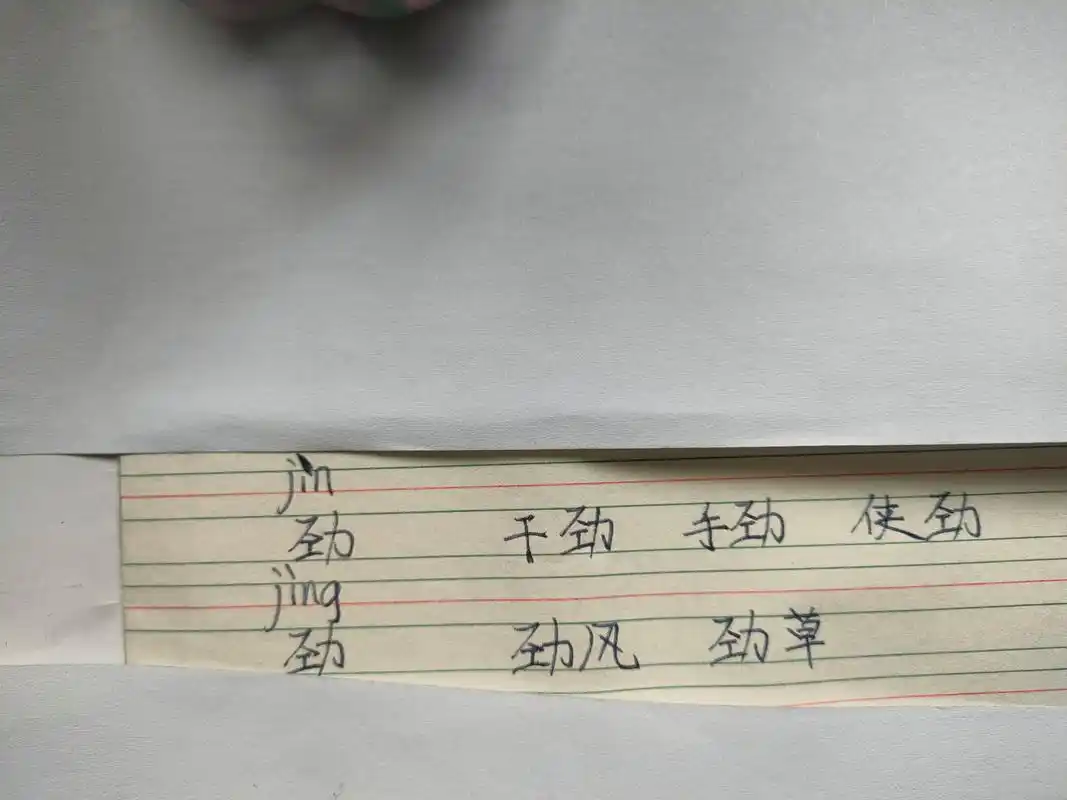 jìn
劲 干劲 手劲 使劲
jìng
劲 劲风 劲草